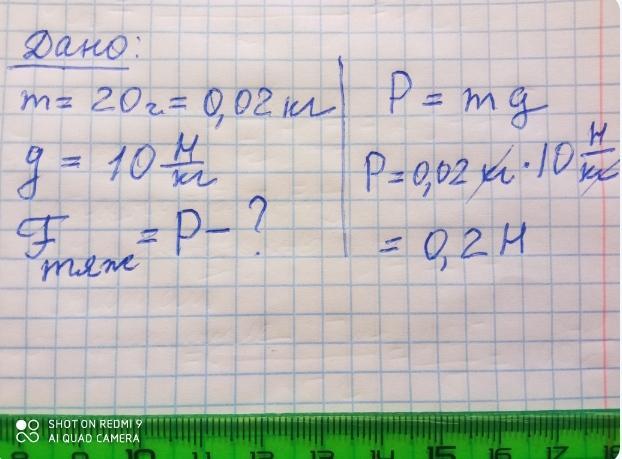 Дано:
m = 20 г = 0,02 кг
g = 10 Н/кг
Fтяж = P - ?
P = mg
P = 0,02 кг · 10 Н/кг
= 0,2 Н
SHOT ON REDMI 9
AI QUAD CAMERA
9 10 11 12 13 14 15 16 17 18